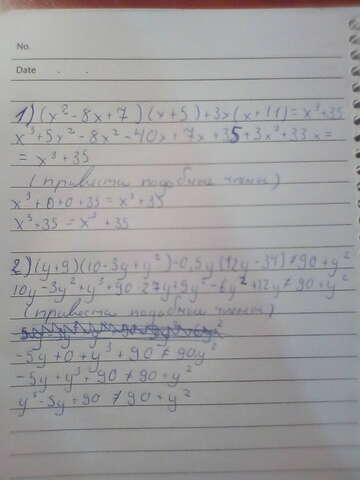 No.
Date . .
1) (x² - 8x + 7) (x + 5) + 3x (x + 11) = x³ + 35
x³ + 5x² - 8x² - 40x + 7x + 35 + 3x² + 33x =
= x³ + 35
(привести подобные члены)
x³ + 0 + 0 + 35 = x³ + 35
x³ + 35 = x³ + 35
2) (y + 9) (10 - 3y + y²) - 0,5y (12y - 34) ≠ 90 + y²
10y - 3y² + y³ + 90 - 27y + 9y² - 6y² + 12y ≠ 90 + y²
(привести подобные члены)
-5y + 0 + y³ + 90 ≠ 90y²
-5y + y³ + 90 ≠ 90 + y²
y³ - 5y + 90 ≠ 90 + y²